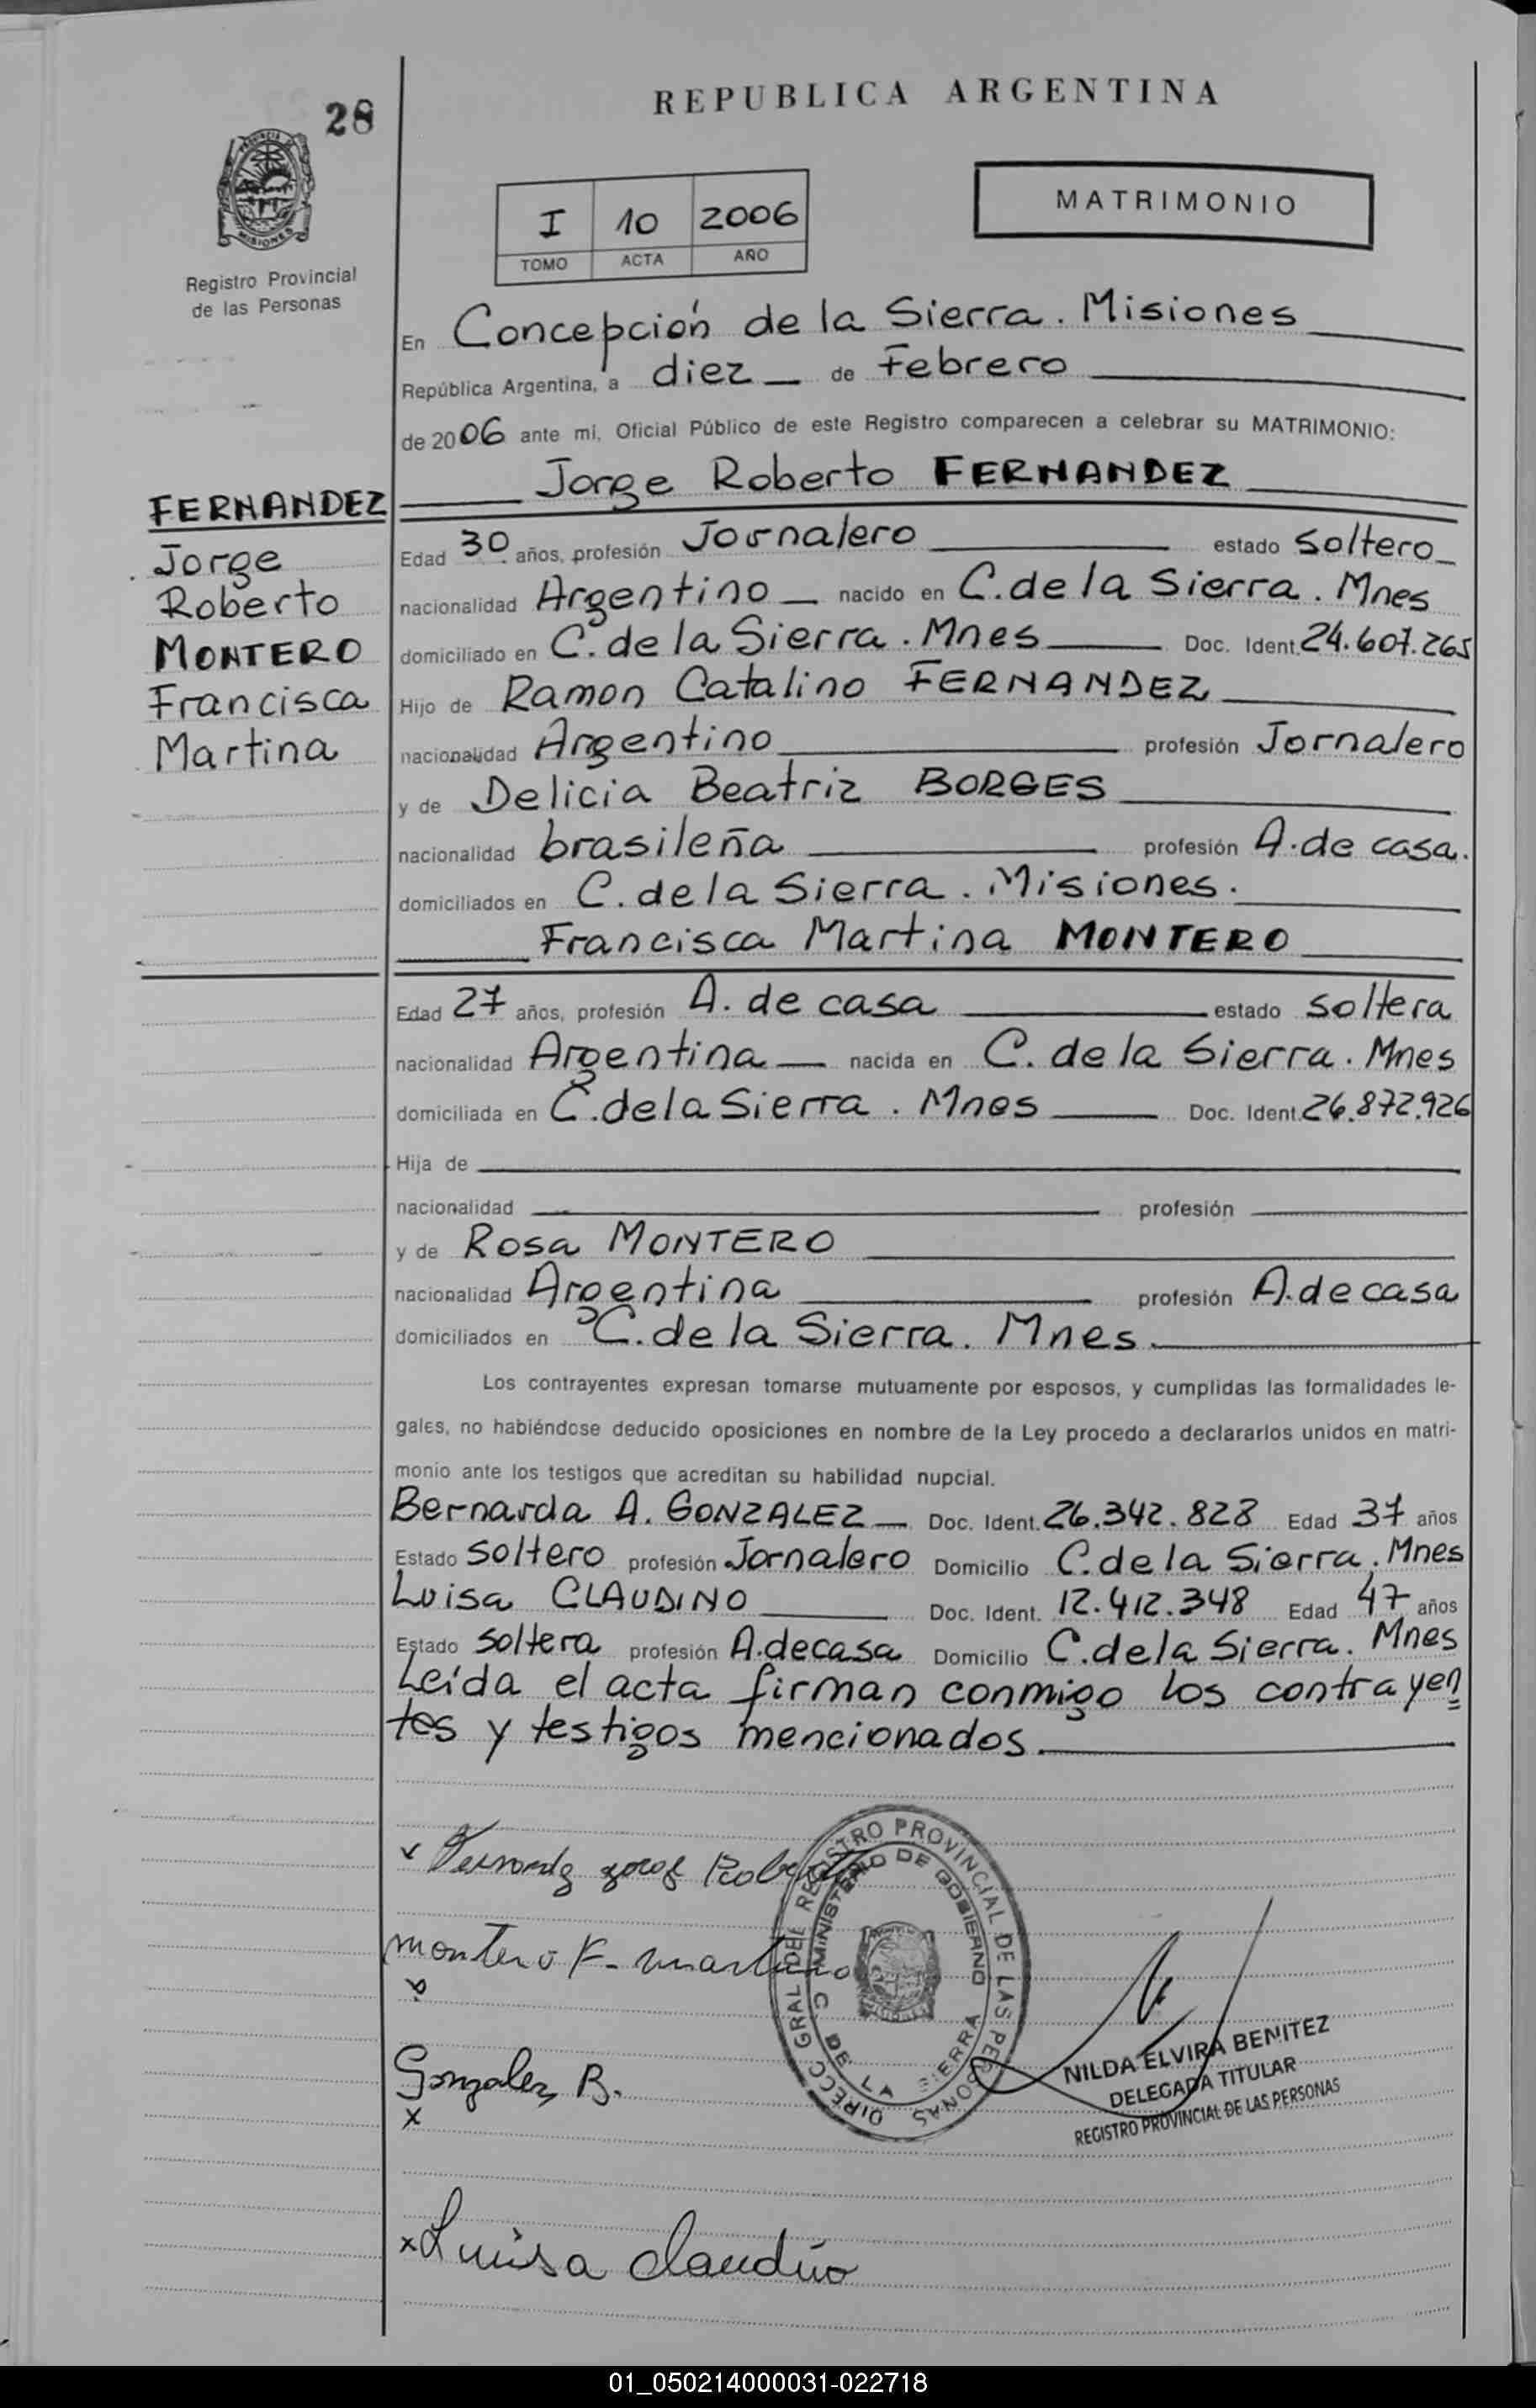 28
REPUBLICA ARGENTINA
PROVINCIA DE
MISIONES
Registro Provincial
de las Personas
I 10 2006
TOMO ACTA AÑO
MATRIMONIO
En Concepción de la Sierra. Misiones
República Argentina, a diez de Febrero
de 2006 ante mi, Oficial Público de este Registro comparecen a celebrar su MATRIMONIO:
Jorge Roberto FERNANDEZ
FERNANDEZ
Jorge
Roberto
MONTERO
Francisca
Martina
Edad 30 años, profesión Jornalero estado Soltero
nacionalidad Argentino nacido en C. de la Sierra. Mnes
domiciliado en C. de la Sierra. Mnes Doc. Ident. 24.607.265
Hijo de Ramon Catalino FERNANDEZ
nacionalidad Argentino profesión Jornalero
y de Delicia Beatriz BORGES
nacionalidad brasileña profesión A. de casa.
domiciliados en C. de la Sierra. Misiones.
Francisca Martina MONTERO
Edad 27 años, profesión A. de casa estado soltera
nacionalidad Argentina nacida en C. de la Sierra. Mnes
domiciliada en C. de la Sierra. Mnes Doc. Ident. 26.872.926
Hija de
nacionalidad profesión
y de Rosa MONTERO
nacionalidad Argentina profesión A. de casa
domiciliados en C. de la Sierra. Mnes.
Los contrayentes expresan tomarse mutuamente por esposos, y cumplidas las formalidades le-
gales, no habiéndose deducido oposiciones en nombre de la Ley procedo a declararlos unidos en matri-
monio ante los testigos que acreditan su habilidad nupcial.
Bernarda A. GONZALEZ Doc. Ident. 26.342.828 Edad 37 años
Estado Soltero profesión Jornalero Domicilio C. de la Sierra. Mnes
Luisa CLAUDINO Doc. Ident. 12.412.348 Edad 47 años
Estado soltera profesión A. de casa Domicilio C. de la Sierra. Mnes
Leída el acta firman conmigo los contrayen
tes y testigos mencionados.
Roberto
montero F.
Gonzalez B.
x
x Luisa Claudino
DIRECC GRAL DEL REGISTRO PROVINCIAL DE LAS PERSONAS
MINISTERIO DE GOBIERNO
C DE LA SIERRA
NILDA ELVIRA BENITEZ
DELEGADA TITULAR
REGISTRO PROVINCIAL DE LAS PERSONAS
01_050214000031-022718